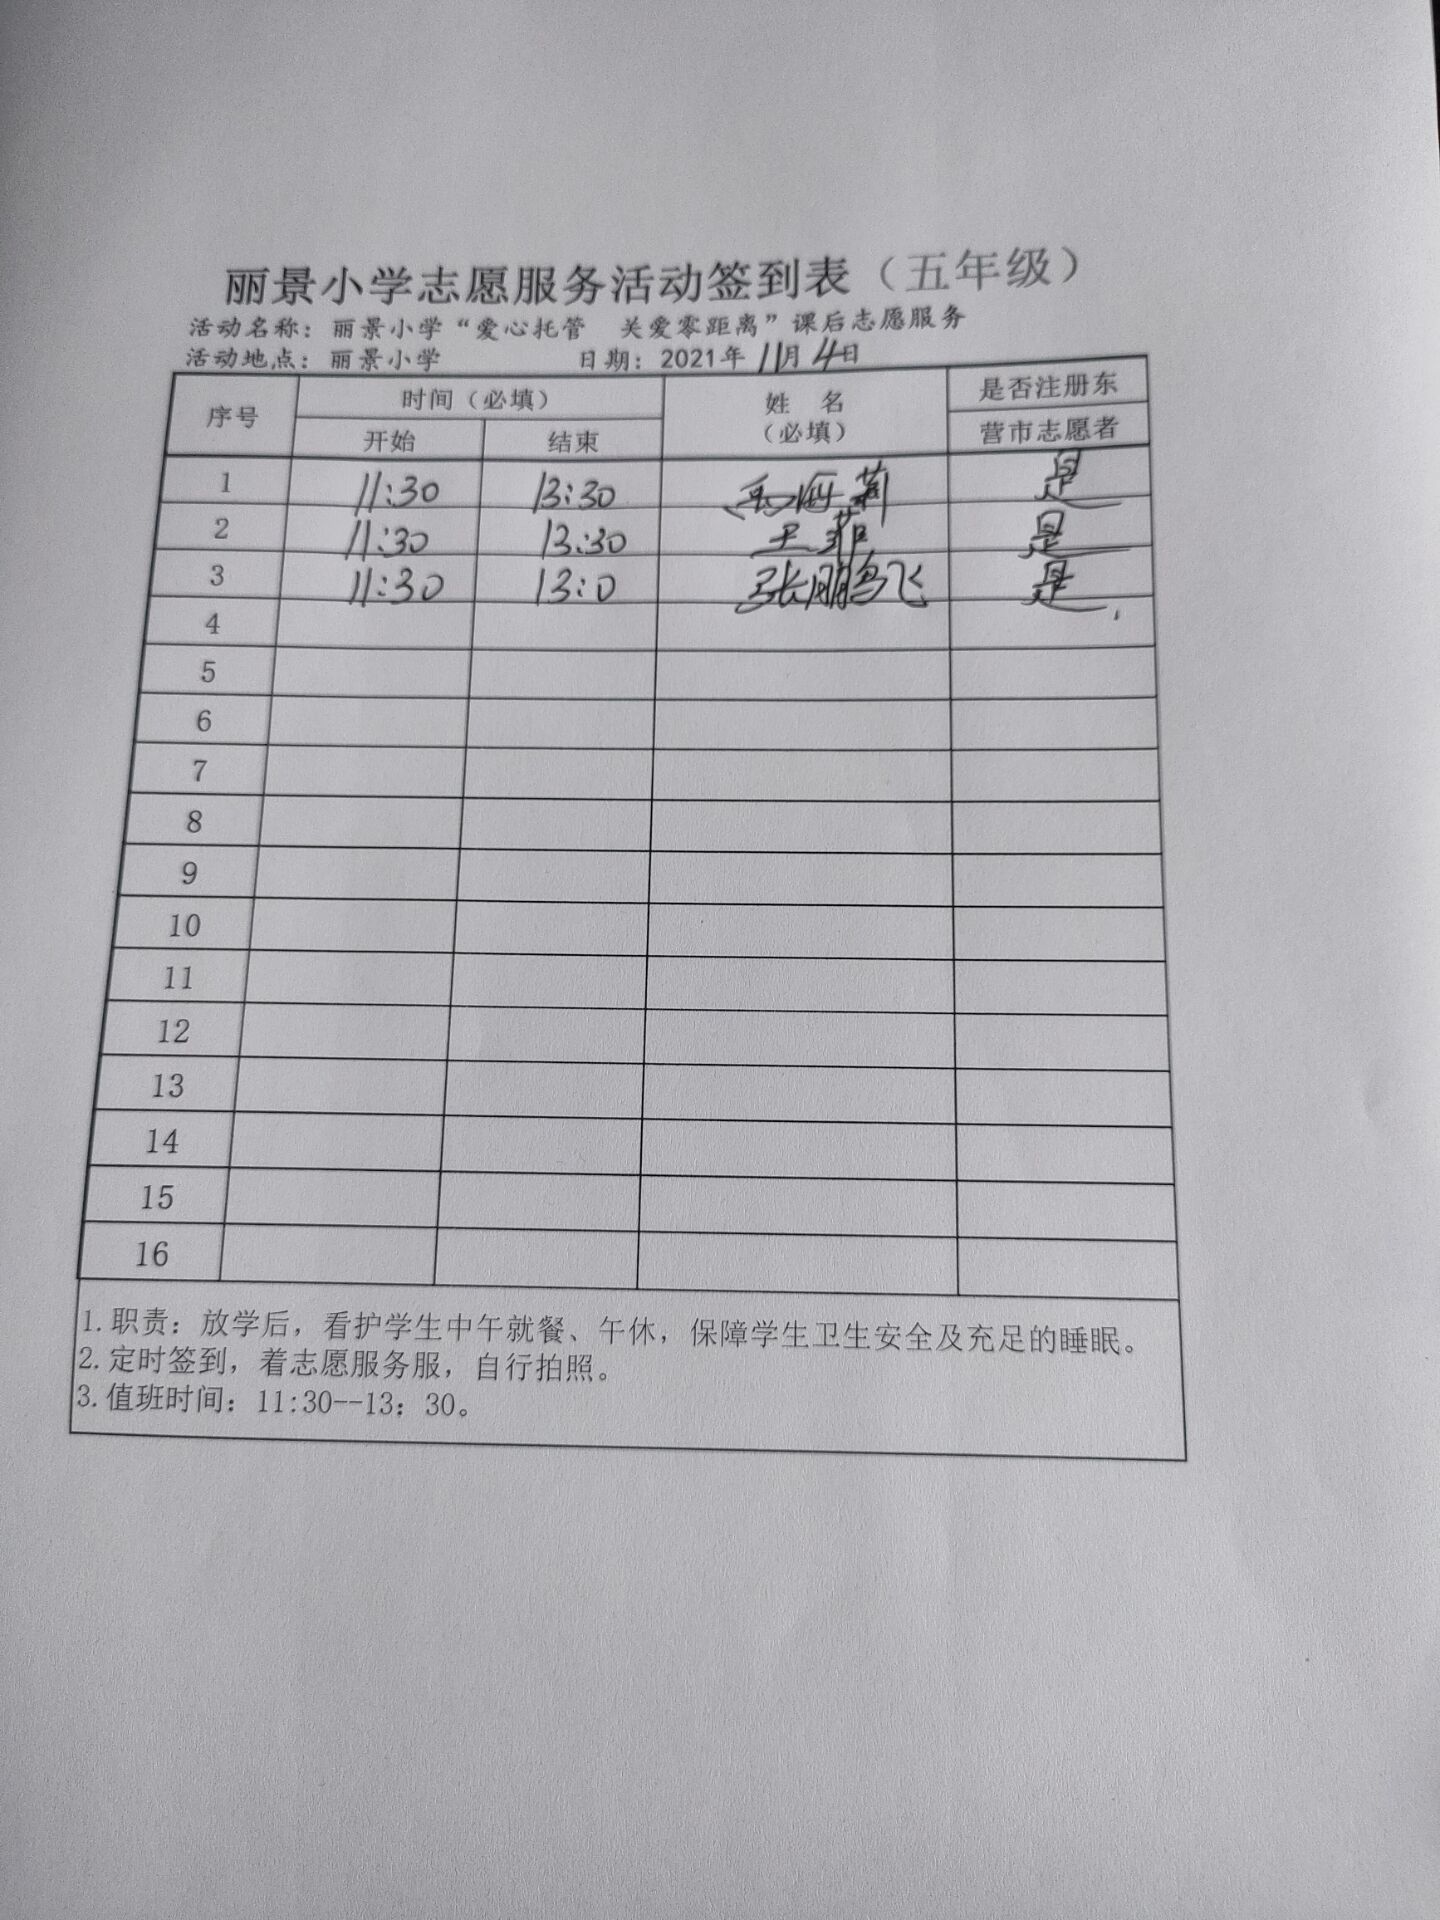 丽景小学志愿服务活动签到表（五年级）
活动名称：丽景小学“爱心托管　关爱零距离”课后志愿服务
活动地点：丽景小学　　日期：2021年11月4日
序号　时间（必填）　姓　名（必填）　是否注册东营市志愿者
开始　结束
1　11:30　13:30　是
2　11:30　13:30　王菲　是
3　11:30　13:0　张鹏飞　是
4
5
6
7
8
9
10
11
12
13
14
15
16
1.职责：放学后，看护学生中午就餐、午休，保障学生卫生安全及充足的睡眠。
2.定时签到，着志愿服务服，自行拍照。
3.值班时间：11:30--13：30。